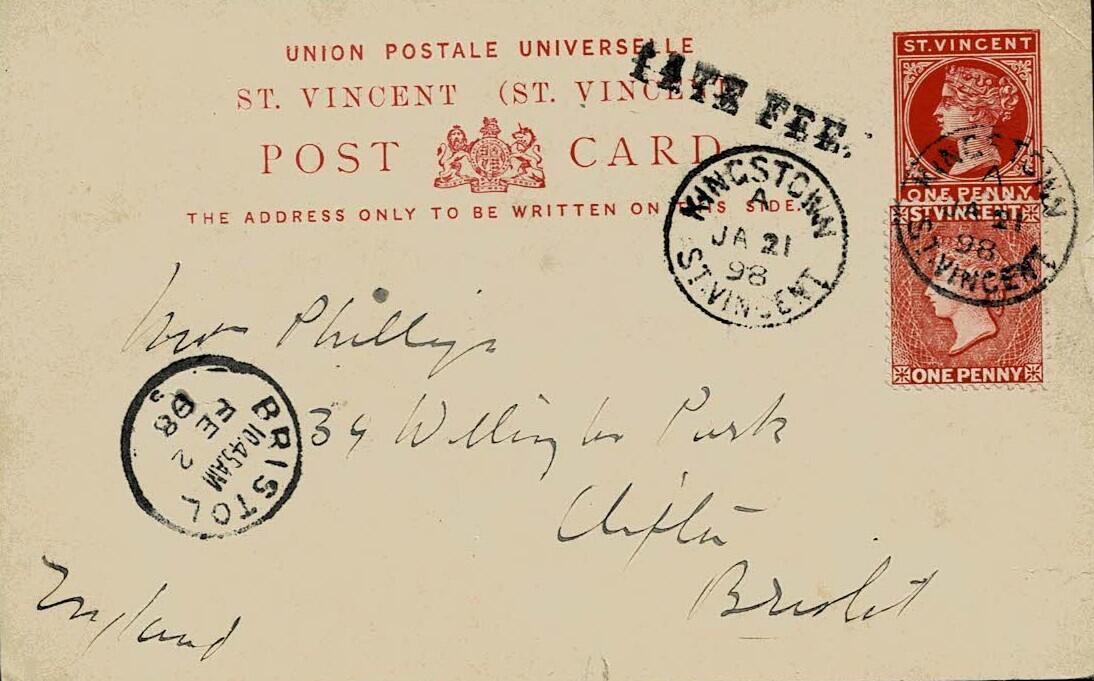 UNION POSTALE UNIVERSELLE
ST. VINCENT (ST. VINCENT)
POST CARD
THE ADDRESS ONLY TO BE WRITTEN ON THIS SIDE.
LATE FEE.
ST. VINCENT
ONE PENNY
ST. VINCENT
ONE PENNY
KINGSTOWN
A
JA 21
98
ST. VINCENT
KINGSTOWN
A
JA 21
98
ST. VINCENT
Phillips
Park
Clifton
Bristol
England
BRISTOL
10.45AM
FE 2
98